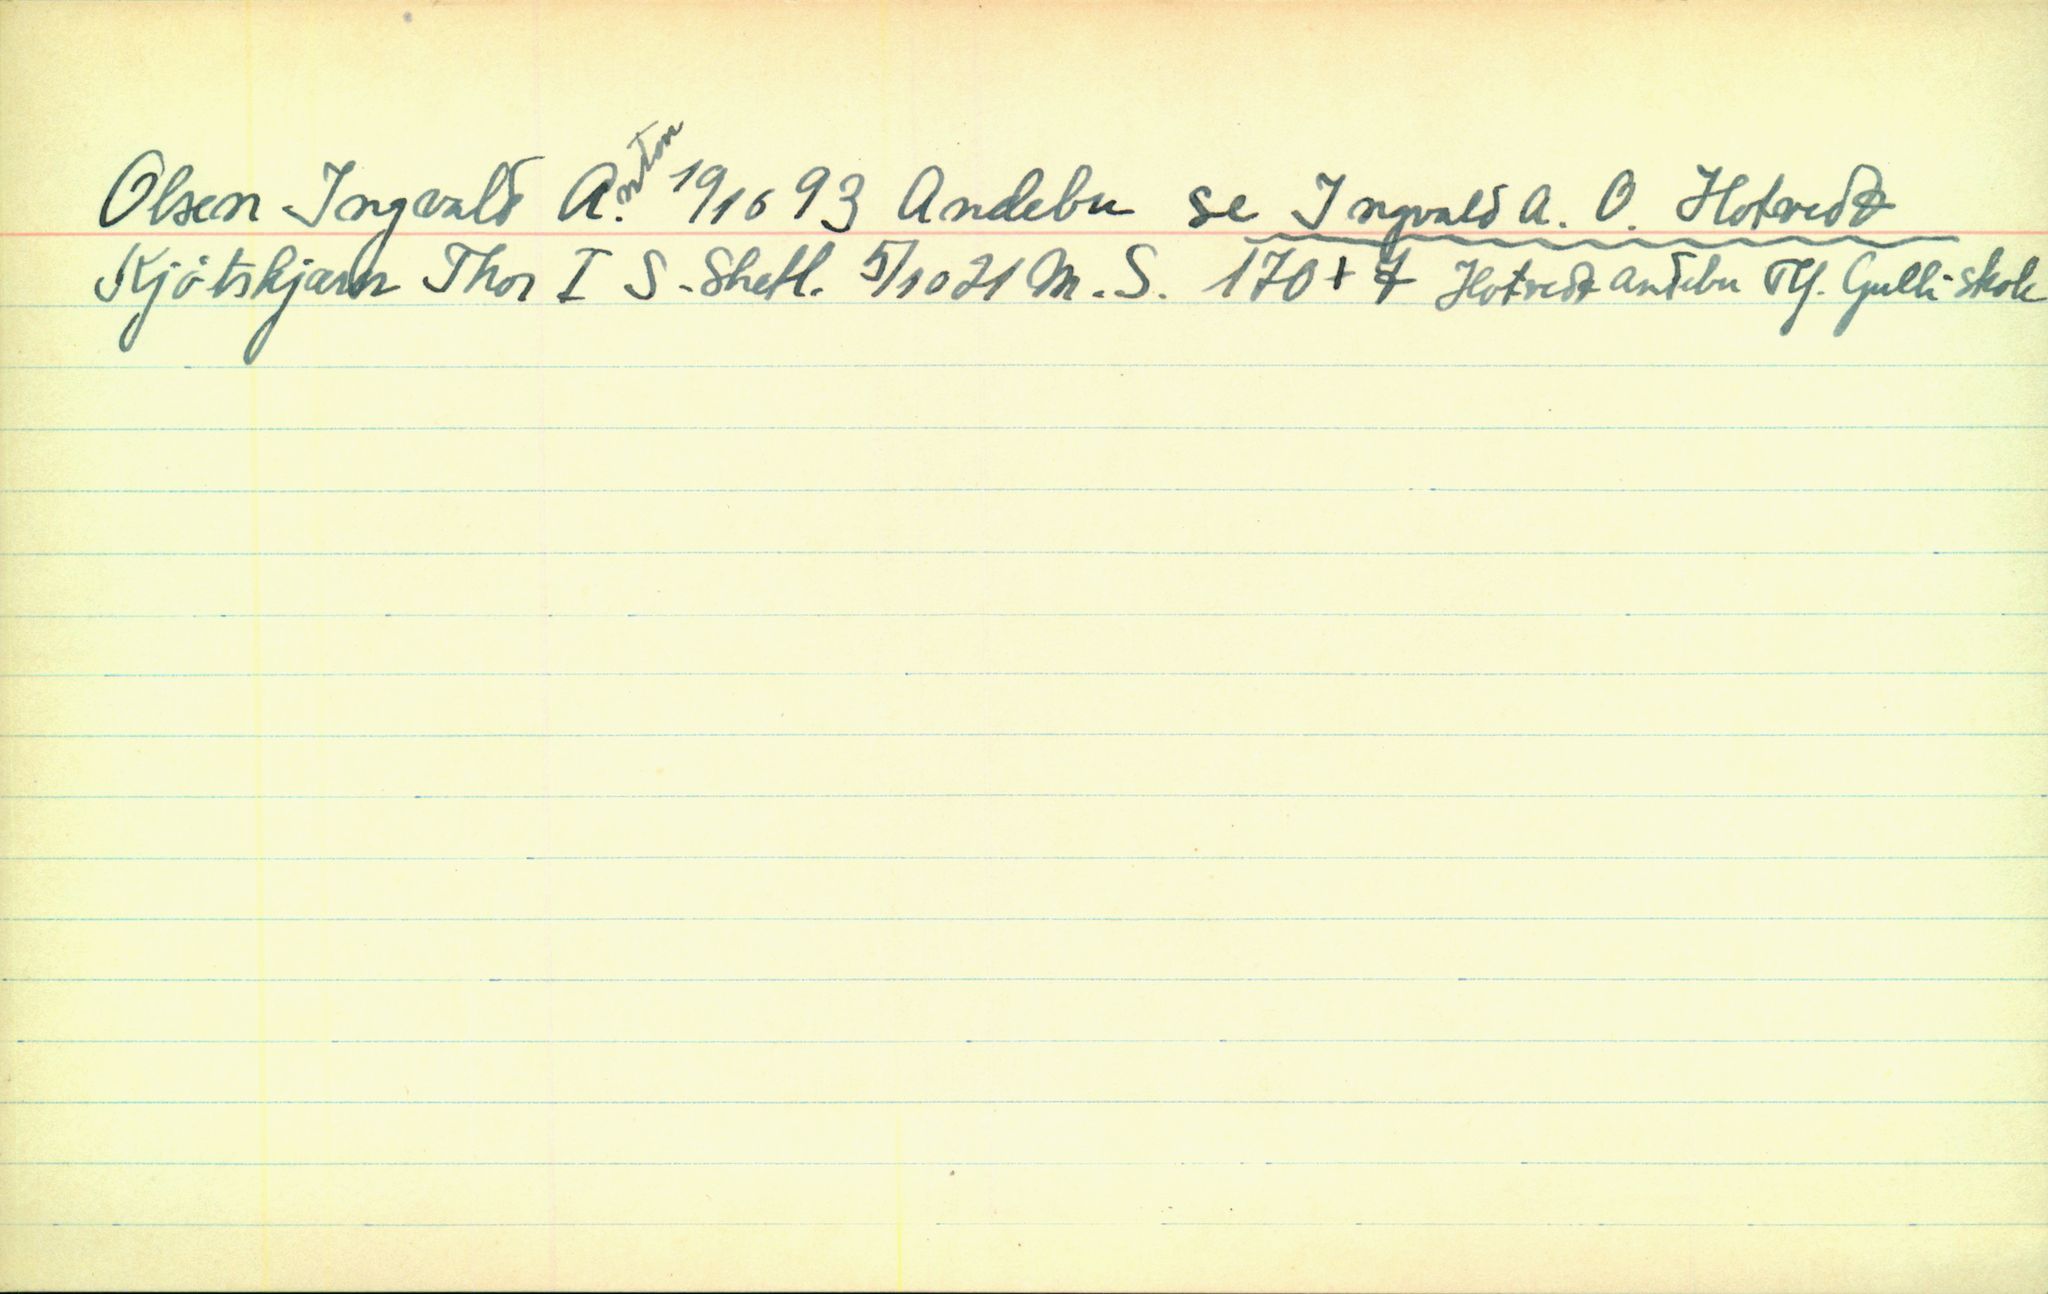 Olsen Ingvald A.nton 19/10 93 Andebu se Ingvald A. O. Hotvedt
Kjötskjærer Thor I S. Shetl. 5/10 21 M.S. 170 + t Hotvedt Andebu Tlf. Gulli skole